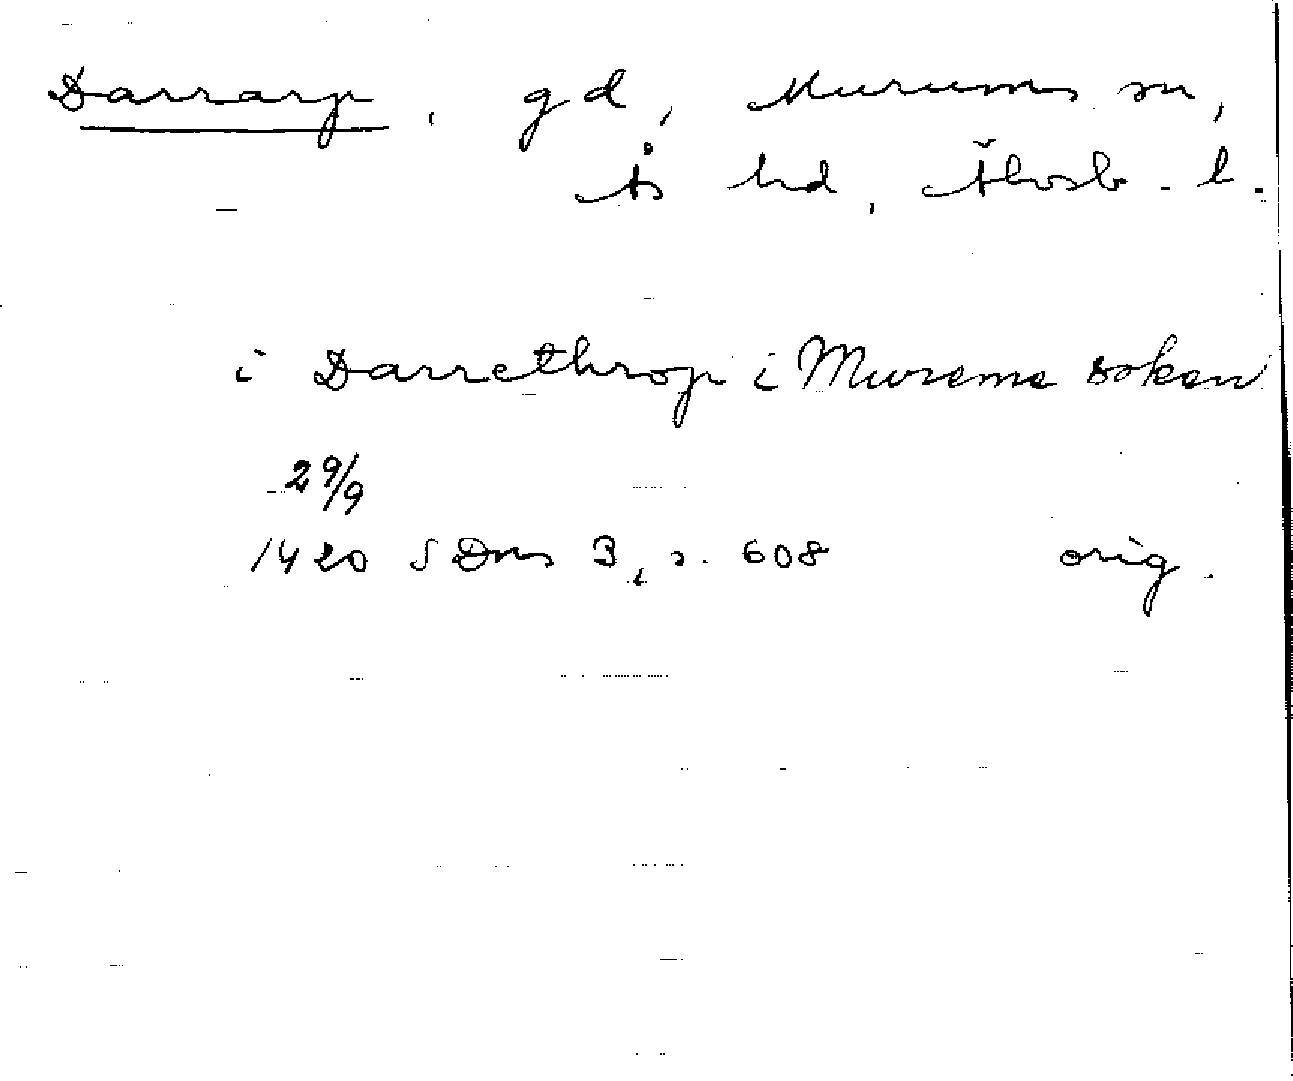 Darrarp, gd, Murums sn,
Ås hd, Älvsb. l.
i Darrethrop i Murems soken
29/9
1420 SDns 3, s. 608 orig.